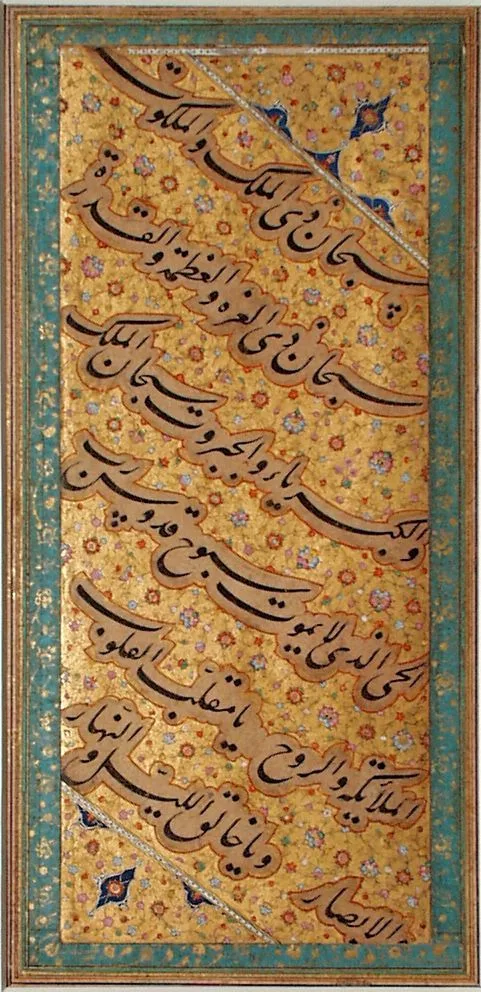 سبحان ذی الملک والملکوت
سبحان ذی العزه والعظمة والقدرة
والکبریاء والجبروت سبحان الملک
الحی الذی لا یموت سبوح قدوس رب
الملائکه والروح یا مقلب القلوب
والابصار ویا خالق اللیل والنهار